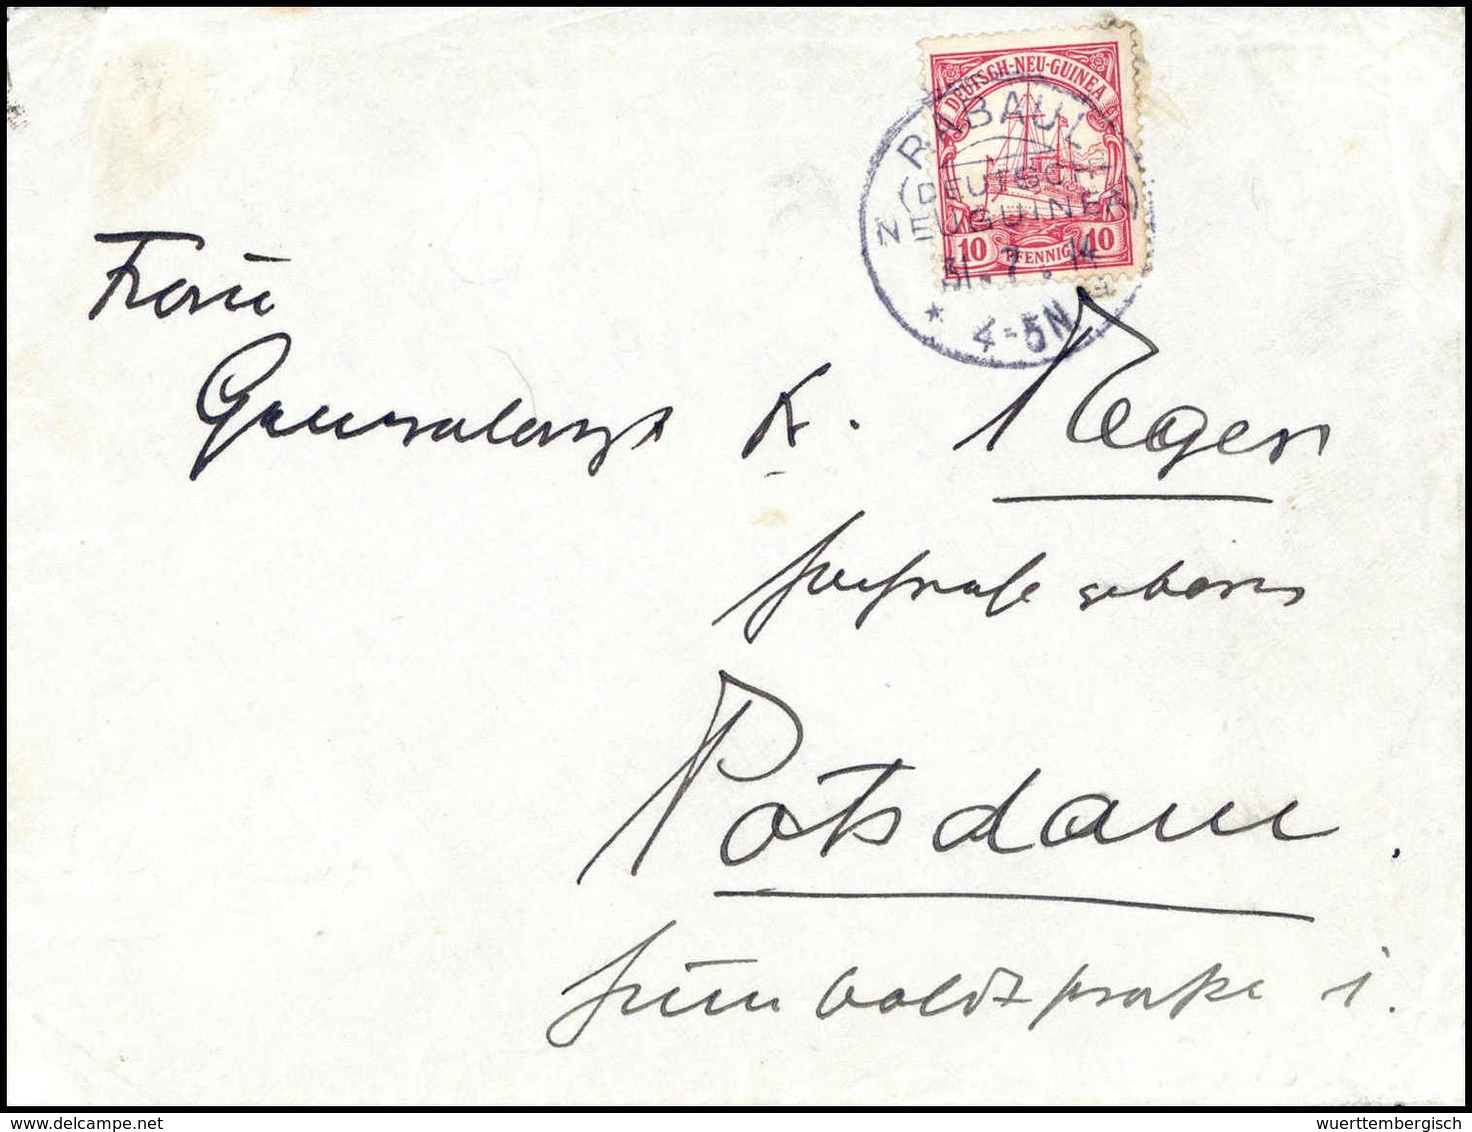 DEUTSCH-NEU-GUINEA
10 PFENNIG 10
RABAUL
(DEUTSCH-
NEUGUINEA)
31.7.14
* 4-5N
Frau
Generalarzt K. Meyer
geborene
Potsdam.
Humboldtstraße 1.
delcampe.net
wuerttembergisch